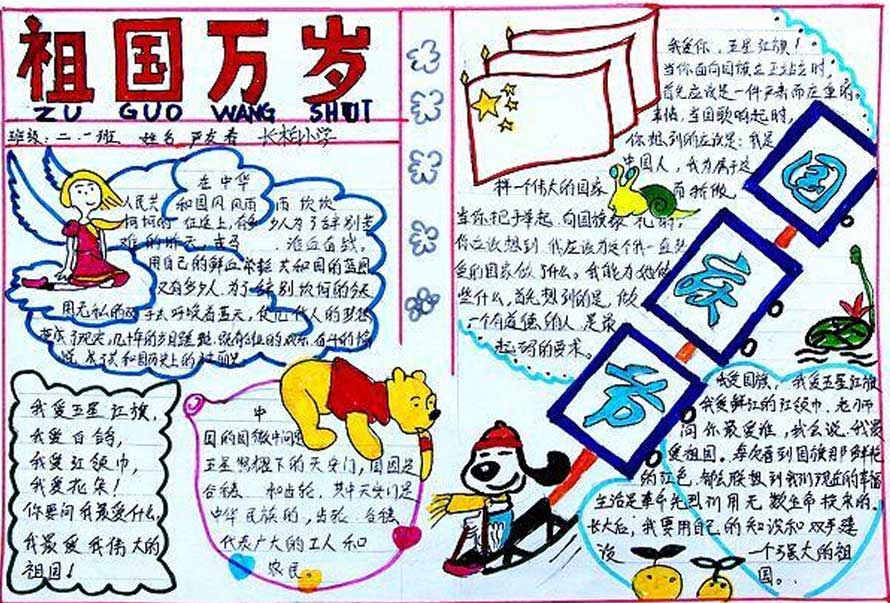 祖国万岁
ZU GUO WANG SHUI
班级：二.一班 姓名 严友春 长柏小学
在中华
人民共和国风风雨雨 坎坎
坷坷的征途上，有多少人为了
难的昨天，
用自己的鲜血 共和国的蓝图
又有多少人，为了告别坎坷的今天
用无私的双手去 蓝天，使几代人的梦想
变成了现实，几十年的岁月
我爱五星红旗，
我爱白鸽，
我爱红领巾，
我爱花朵！
你要问我最爱什么，
我最爱我伟大的
祖国！
中
国的国徽中间是
五星照耀下的天安门，周围是
谷穗 和齿轮，其中天安门是
中华民族的，齿轮、谷穗
代表广大的工人和
农民
我爱你，五星红旗！
当你面向国旗立正站立时，
首先应该是一件严肃而庄重的
事情，当国歌响起时，
你想到的应该是：我是
中国人，我为属于这
样一个伟大的国家 而骄傲，
当你把手举起，向国旗敬礼时，
你应该想到，我应该为这个我一直热
爱的国家做了什么。我能为她做
些什么，首先想到的是，做
一个有道德的人，是最
起码的要求。
国庆节
我爱国旗，我爱五星红旗
我爱鲜红的红领巾，老师
问你最爱谁，我会说，我最
爱祖国。每次看到国旗那鲜艳
的红色，都会联想到我们现在的幸福
生活是革命先烈们用无数生命换来的。
长大后，我要用自己的知识和双手建
设 一个强大的祖
国。